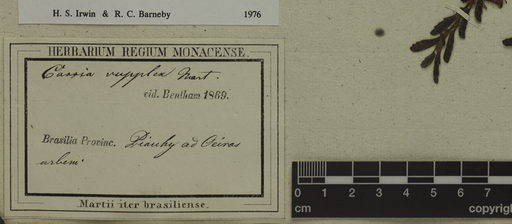 H. S. Irwin & R. C. Barneby 1976
HERBARIUM REGIUM MONACENSE.
Cassia supplex Mart.
vid. Bentham 1869.
Brasilia Provinc. Piauhy ad Oeiras
urbem.
Martii iter brasiliense.
0 1 2 3 4 5 6 7
cm copyrigh